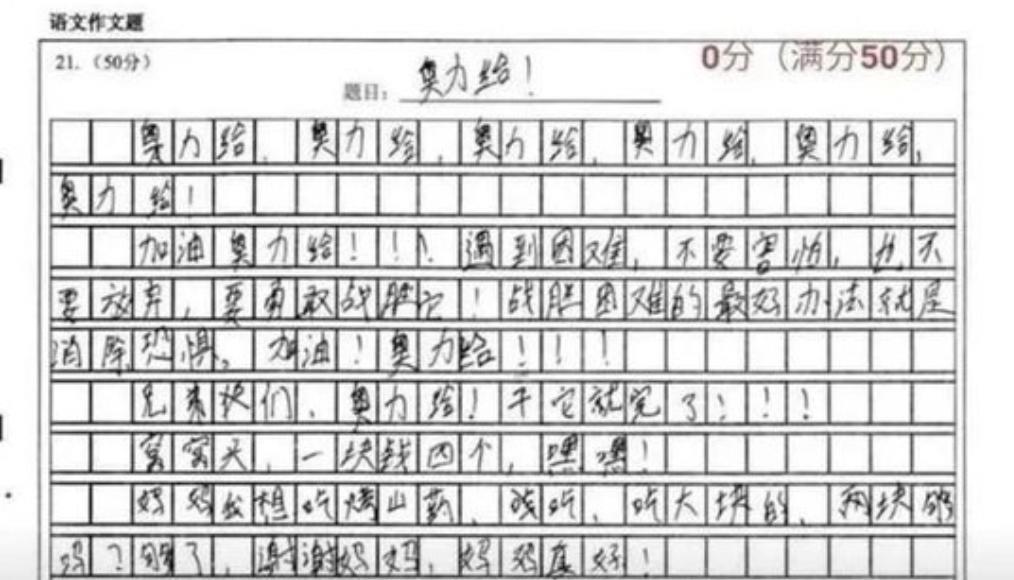 语文作文题
21.（50分） 0分（满分50分）
题目： 奥力给！
奥力给，奥力给，奥力给，奥力给，奥力给，
奥力给！
加油奥力给！！！遇到困难，不要害怕，也不
要放弃，要勇敢战胜它！战胜困难的最好办法就是
消除恐惧。加油！奥力给！！！
兄弟们，奥力给！干它就完了！！！
窝窝头，一块钱四个，嘿嘿！
妈妈我想吃烤山药，戗吃，吃大块的，两块够
吗？够了，谢谢妈妈，妈妈真好！